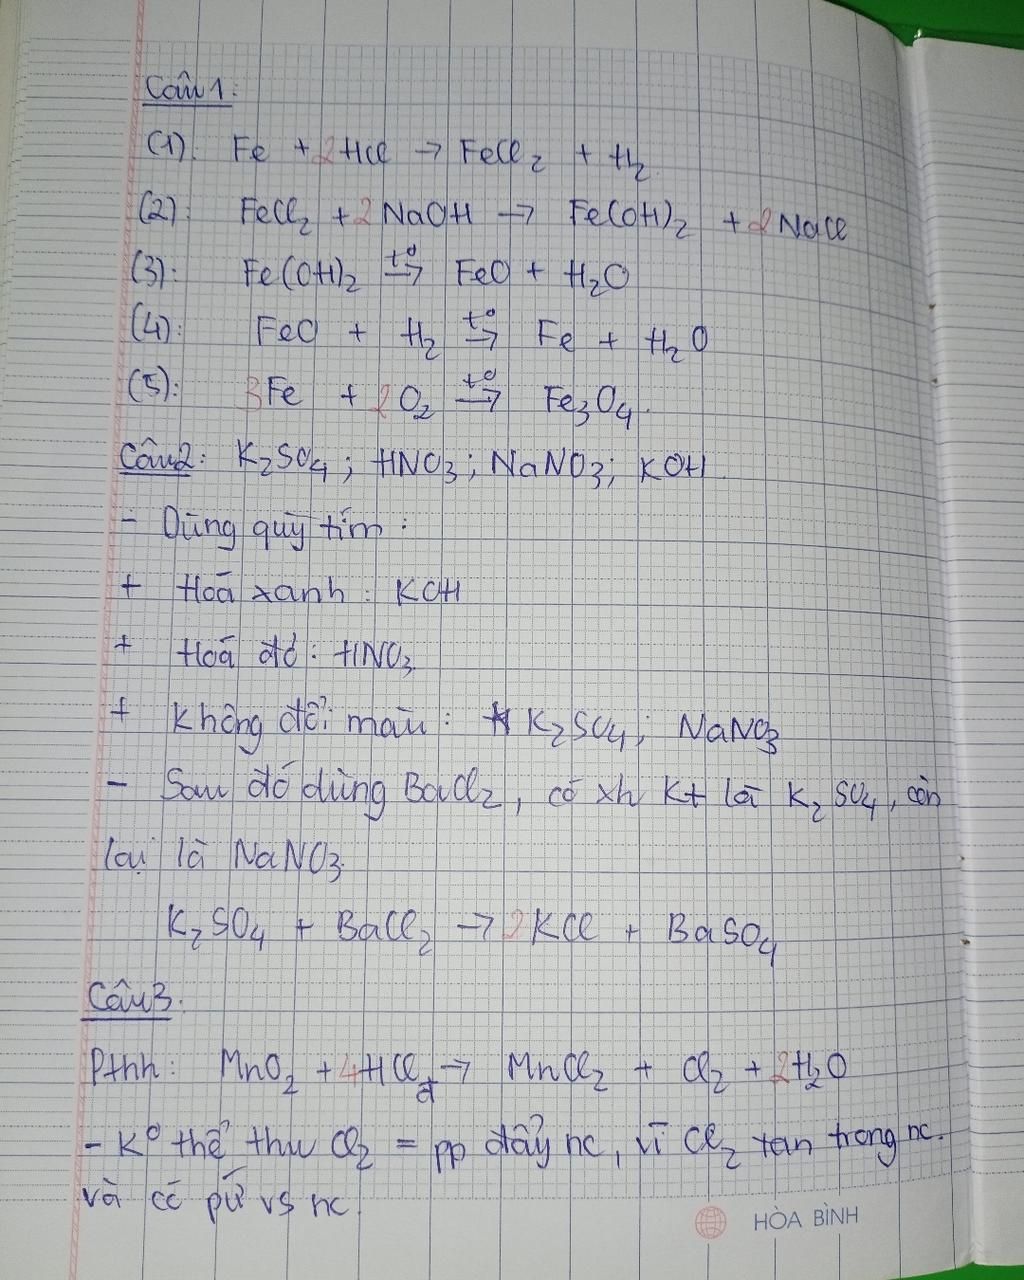 Câu 1:
(1): Fe + 2HCl → FeCl₂ + H₂
(2): FeCl₂ + 2NaOH → Fe(OH)₂ + 2NaCl
(3): Fe(OH)₂ t°→ FeO + H₂O
(4): FeO + H₂ t°→ Fe + H₂O
(5): 3Fe + 2O₂ t°→ Fe₃O₄.
Câu 2: K₂SO₄; HNO₃; NaNO₃; KOH.
- Dùng quỳ tím:
+ Hoá xanh: KOH
+ Hoá đỏ: HNO₃
+ Không đổi màu: K₂SO₄; NaNO₃
- Sau đó dùng BaCl₂, có xh kt là K₂SO₄, còn
lại là NaNO₃.
K₂SO₄ + BaCl₂ → 2KCl + BaSO₄
Câu 3.
Pthh: MnO₂ + 4HClđ → MnCl₂ + Cl₂ + 2H₂O
- K° thể thu Cl₂ = pp đẩy nc, vì Cl₂ tan trong nc.
và có pứ vs nc.
HÒA BÌNH